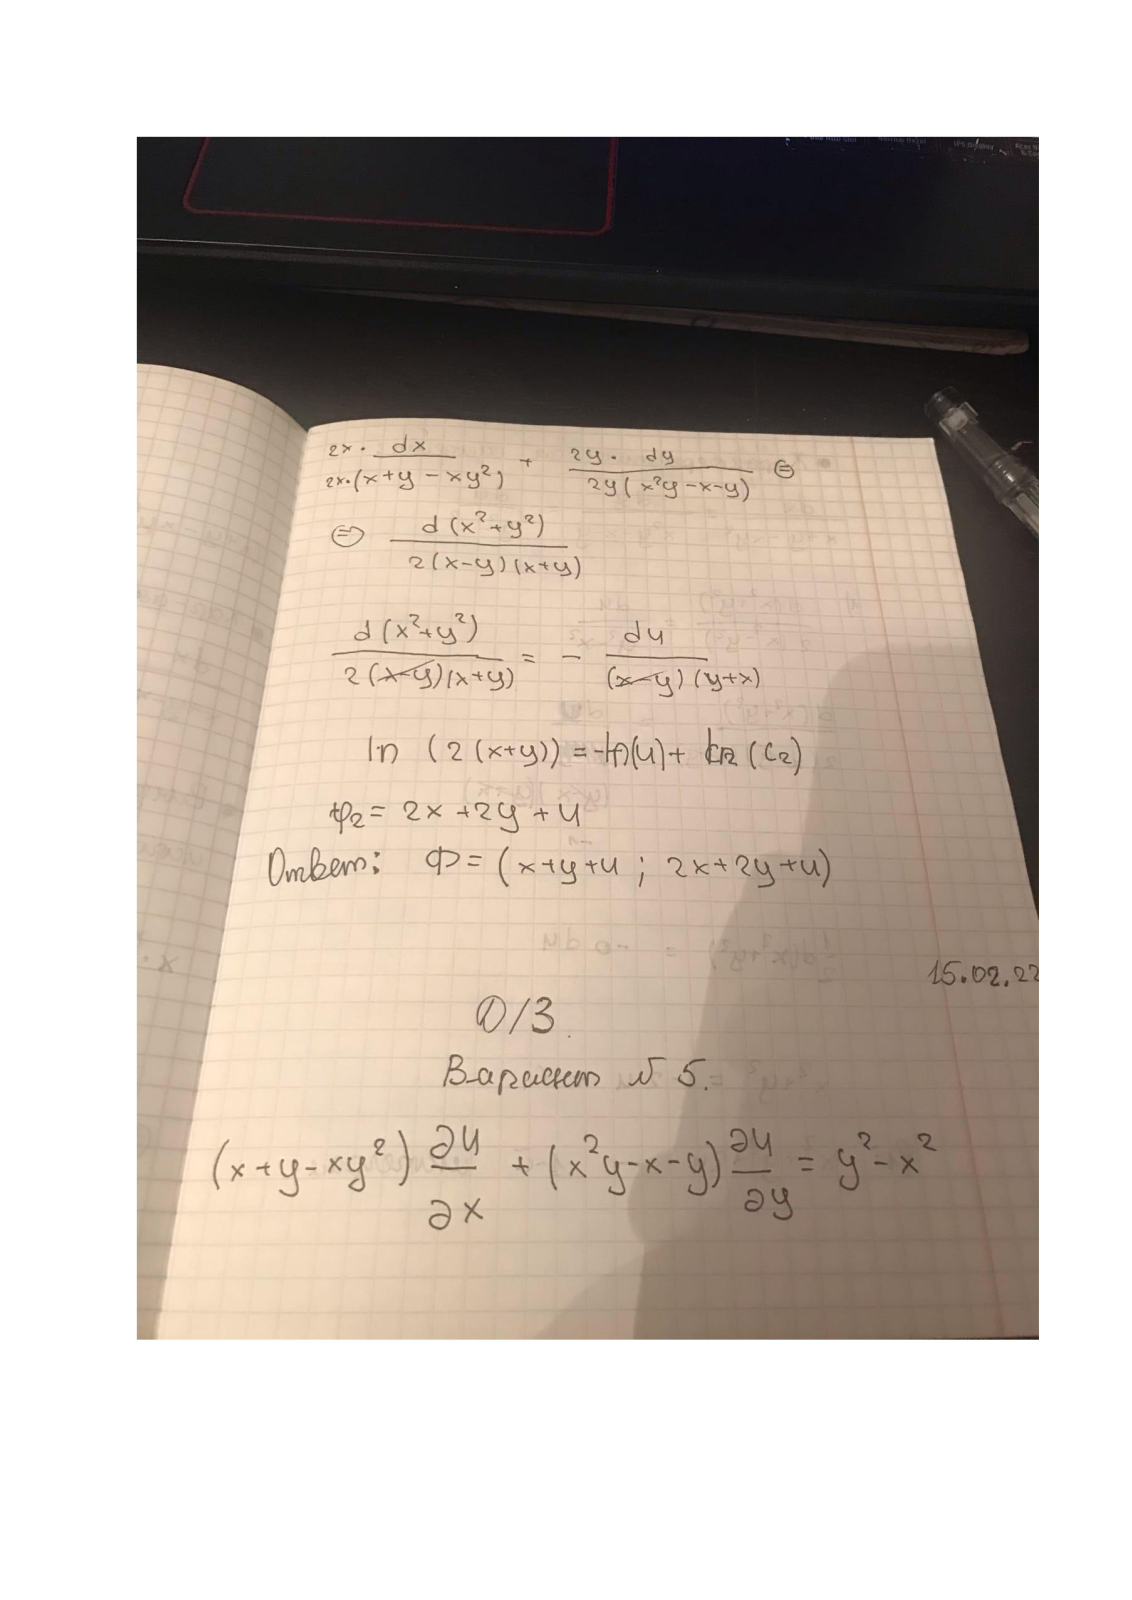 2x · dx / 2x·(x+y−xy²) + 2y · dy / 2y(x²y−x−y) ⊜
⊜ d(x²+y²) / 2(x−y)(x+y)
d(x²+y²) / 2(x−y)(x+y) = − du / (x−y)(y+x)
ln (2(x+y)) = −ln(u) + ln (C₂)
φ₂ = 2x+2y+u
Ответ: Ф = (x+y+u ; 2x+2y+u)
15.02.22
Д/З.
Вариант № 5.
(x+y−xy²) ∂u/∂x + (x²y−x−y) ∂u/∂y = y²−x²